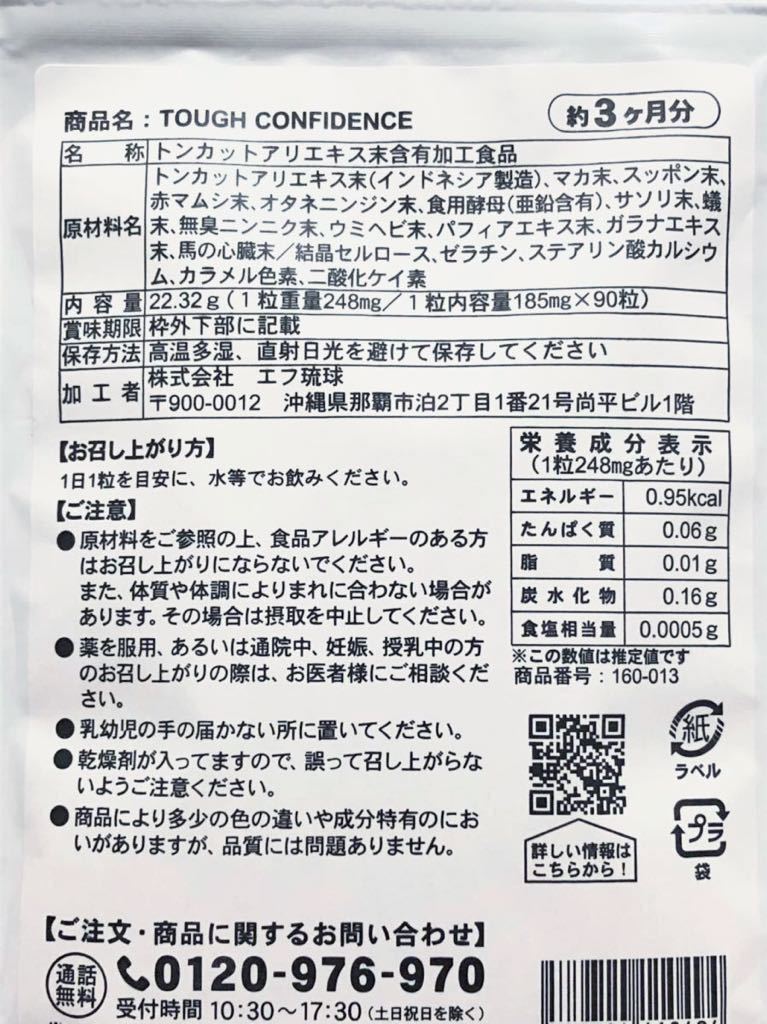 商品名：TOUGH CONFIDENCE
約3ヶ月分
名　称 トンカットアリエキス末含有加工食品
原材料名 トンカットアリエキス末（インドネシア製造）、マカ末、スッポン末、
赤マムシ末、オタネニンジン末、食用酵母（亜鉛含有）、サソリ末、蟻
末、無臭ニンニク末、ウミヘビ末、パフィアエキス末、ガラナエキス
末、馬の心臓末／結晶セルロース、ゼラチン、ステアリン酸カルシウ
ム、カラメル色素、二酸化ケイ素
内容量 22.32g（1粒重量248mg／1粒内容量185mg×90粒）
賞味期限 枠外下部に記載
保存方法 高温多湿、直射日光を避けて保存してください
加工者 株式会社　エフ琉球
〒900-0012　沖縄県那覇市泊2丁目1番21号尚平ビル1階
【お召し上がり方】
1日1粒を目安に、水等でお飲みください。
【ご注意】
●原材料をご参照の上、食品アレルギーのある方
はお召し上がりにならないでください。
また、体質や体調によりまれに合わない場合が
あります。その場合は摂取を中止してください。
●薬を服用、あるいは通院中、妊娠、授乳中の方
のお召し上がりの際は、お医者様にご相談くだ
さい。
●乳幼児の手の届かない所に置いてください。
●乾燥剤が入ってますので、誤って召し上がらな
いようご注意ください。
●商品により多少の色の違いや成分特有のにお
いがありますが、品質には問題ありません。
栄養成分表示
（1粒248mgあたり）
エネルギー 0.95kcal
たんぱく質 0.06g
脂質 0.01g
炭水化物 0.16g
食塩相当量 0.0005g
※この数値は推定値です
商品番号：160-013
紙
ラベル
プラ
袋
詳しい情報は
こちらから！
【ご注文・商品に関するお問い合わせ】
通話
無料
0120-976-970
受付時間 10:30～17:30（土日祝日を除く）